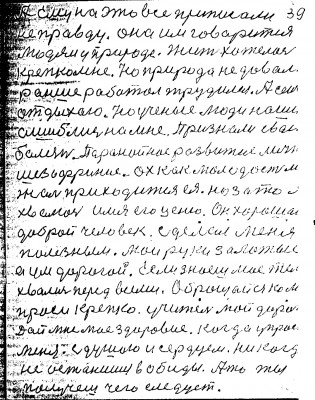 А они на это все приписали 39
неправду. она им говорится
людям и природе. Жит хотела
крепко мне. Но природа не довал
ранше работал трудилы. А сей
отдыхаю. Но ученые люди наши
сшиблися на мне. Признали сваи
болезн. Параноеное развитие личн
шезьдфрение. Ох как молодост м
жал приходится ея. но зато л
хвалюк имя его ценю. Он хороший
доброй человек. сделал меня
полезным. мои руки залатые
я им дорогой. Если знаеш мае тел
хвалис перед всеми. Обрашайся ком
проси крепко. учител мой даро
вал мне мое здоровие. Когда упрос
меня. с душою и сердцем. ни когд
не останиш в обиды. А то ты
получеш чего следует.